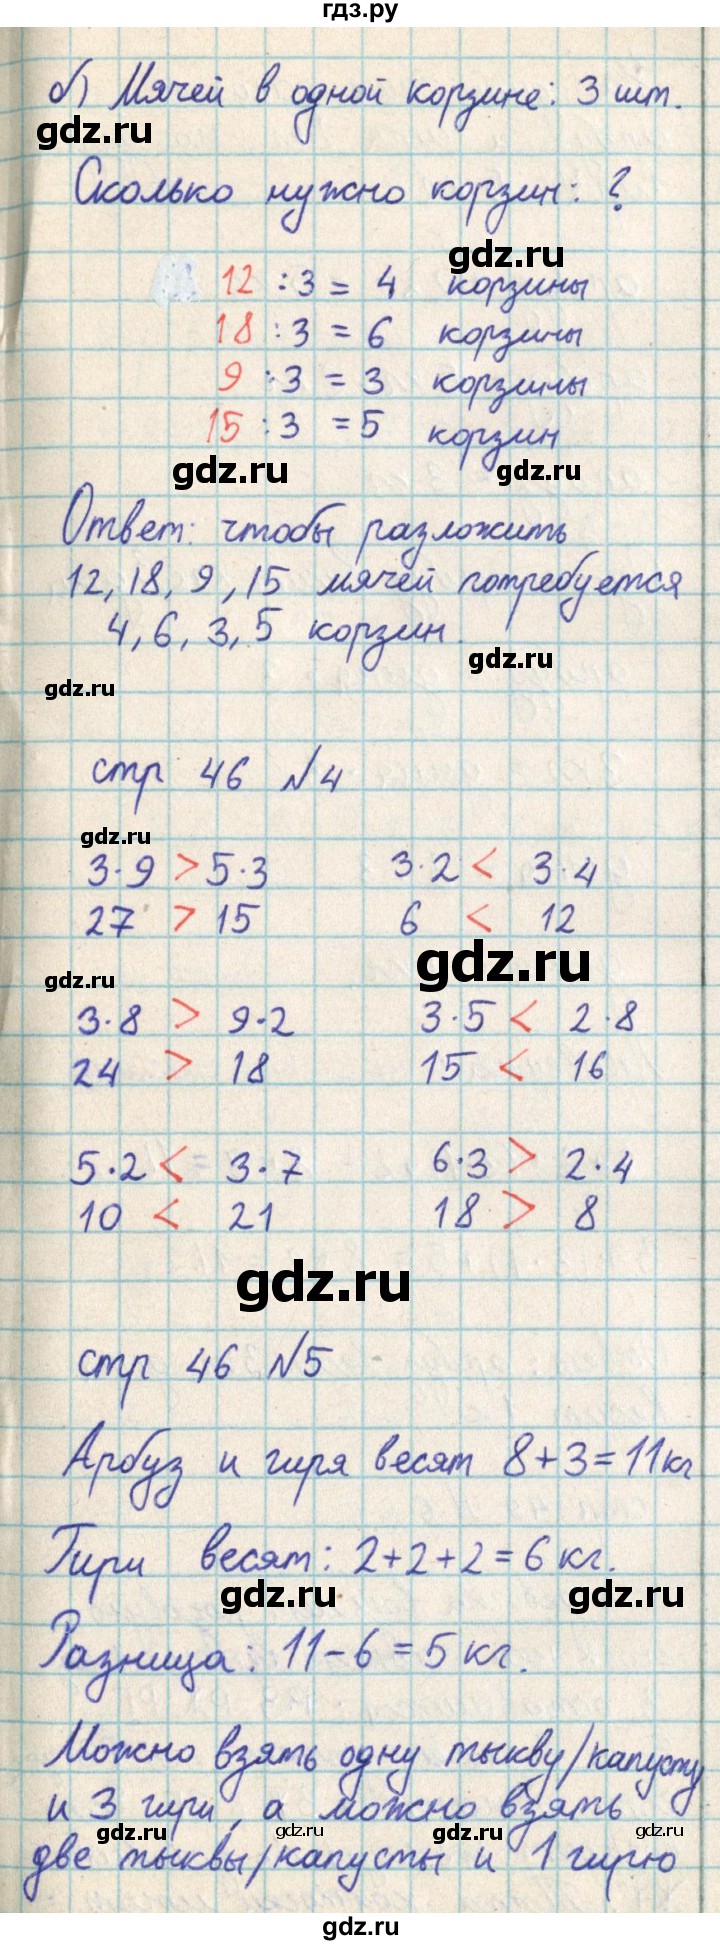 гдз.ру
б) Мячей в одной корзине: 3 шт.
gdz.ru
Сколько нужно корзин: ?
gdz.ru
12 : 3 = 4 корзины
18 : 3 = 6 корзины
9 : 3 = 3 корзины
15 : 3 = 5 корзин
gdz.ru gdz.ru
Ответ: чтобы разложить
12, 18, 9, 15 мячей потребуется
4, 6, 3, 5 корзин.
gdz.ru
gdz.ru
стр 46 №4
gdz.ru
3·9 > 5·3 3·2 < 3·4
27 > 15 6 < 12
gdz.ru
gdz.ru
3·8 > 9·2 3·5 < 2·8
24 > 18 15 < 16
5·2 < 3·7 6·3 > 2·4
10 < 21 18 > 8
gdz.ru
стр 46 №5
Арбуз и гиря весят 8+3=11кг
Гири весят: 2+2+2=6 кг.
gdz.ru gdz.ru
Разница: 11-6=5 кг.
Можно взять одну тыкву/капусту
и 3 гири, а можно взять
gdz.ru gdz.ru gdz.ru gdz.ru
две тыквы/капусты и 1 гирю
gdz.ru